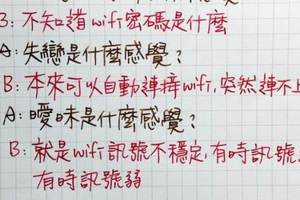 B: 不知道 wifi 密碼是什麼
A: 失戀是什麼感覺?
B: 本來可以自動連接 wifi, 突然連不上
A: 曖昧是什麼感覺?
B: 就是 wifi 訊號不穩定, 有時訊號
有時訊號弱